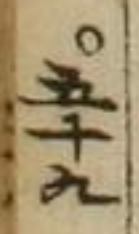 ○五十九